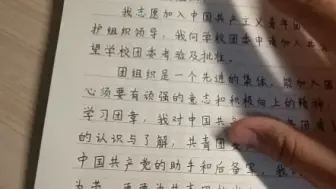 我志愿加入中国共产主义青年
护组织领导，我向学校团委申请加入共
望学校团委考验及批准。
团组织是一个先进的集体，能加入团
心须要有顽强的意志和积极向上的精神
学习团章，我对中国共
的认识与了解，共青团
中国共产党的助手和后备军，我